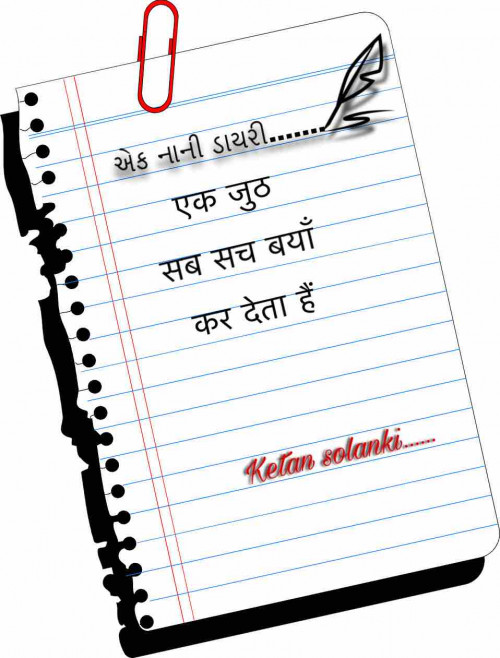 એક નાની ડાયરી.......
एक जुठ
सब सच बयाँ
कर देता हैं
Ketan solanki......